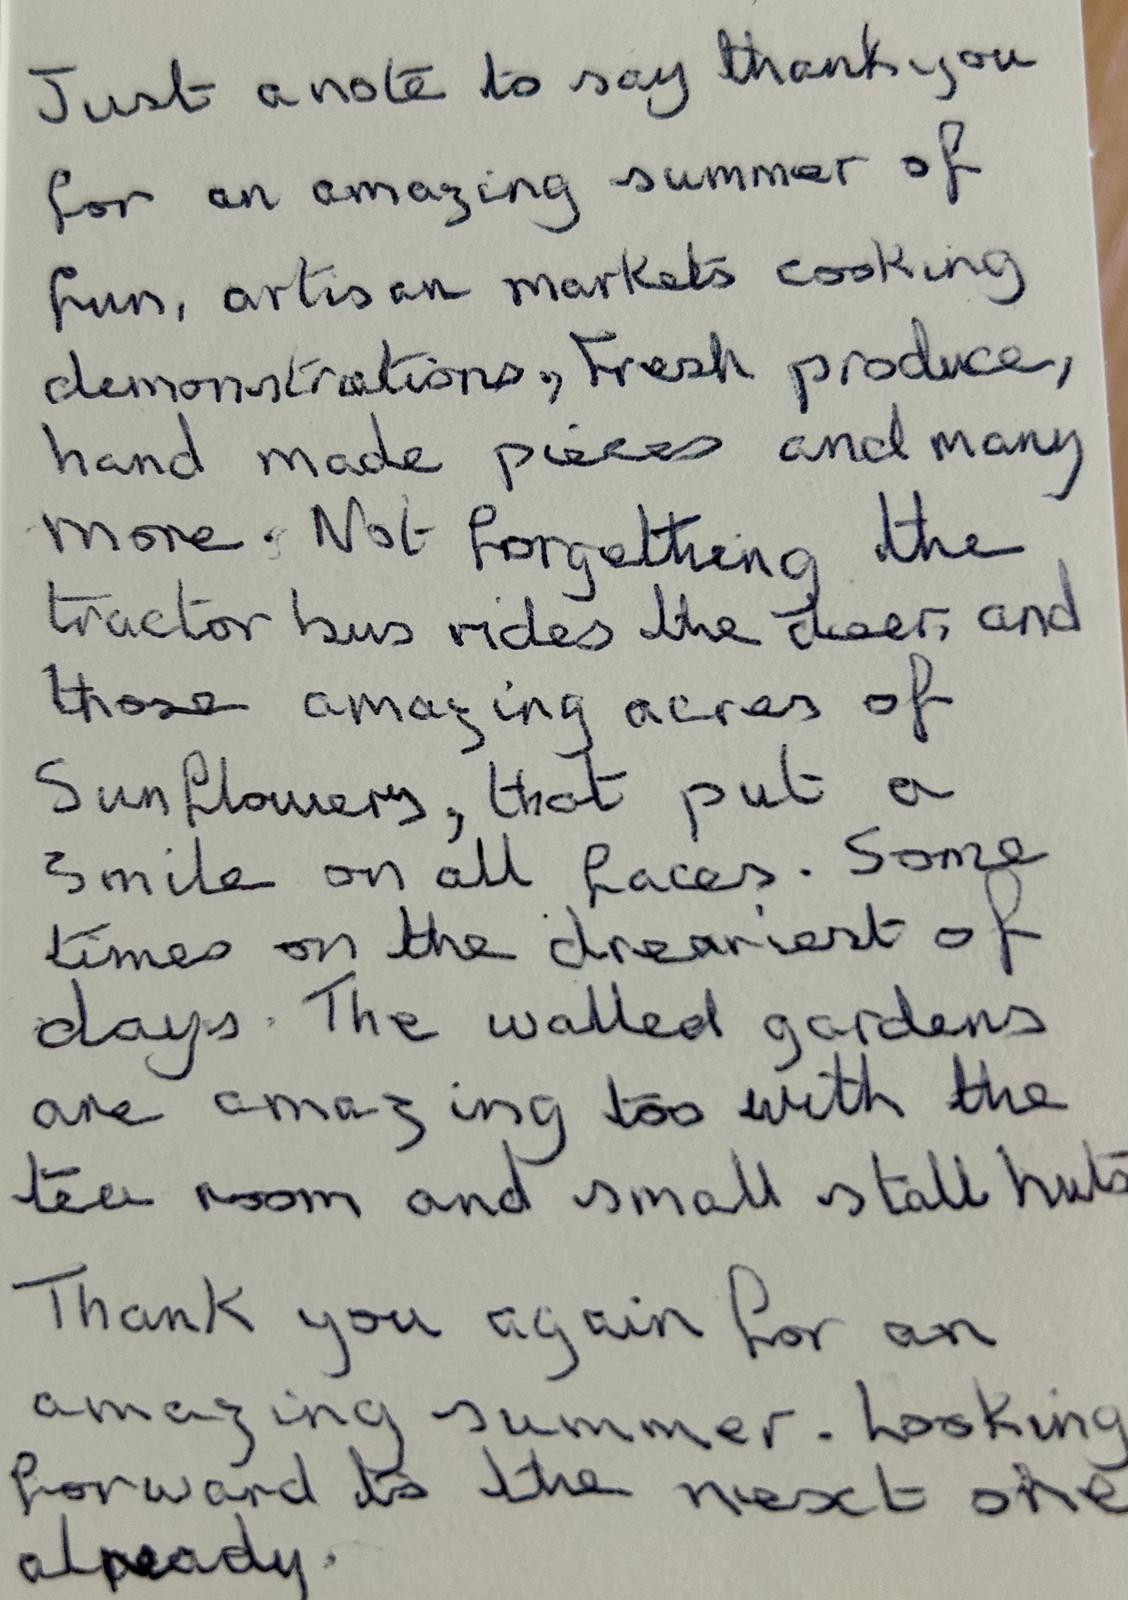 Just a note to say thank you
for an amazing summer of
fun, artisan markets cooking
demonstrations, Fresh produce,
hand made pieces and many
more. Not forgetting the
tractor bus rides the deer, and
those amazing acres of
Sunflowers, that put a
smile on all faces. Some
times on the dreariest of
days. The walled gardens
are amazing too with the
tea room and small stall huts
Thank you again for an
amazing summer. Looking
forward to the next one
already.